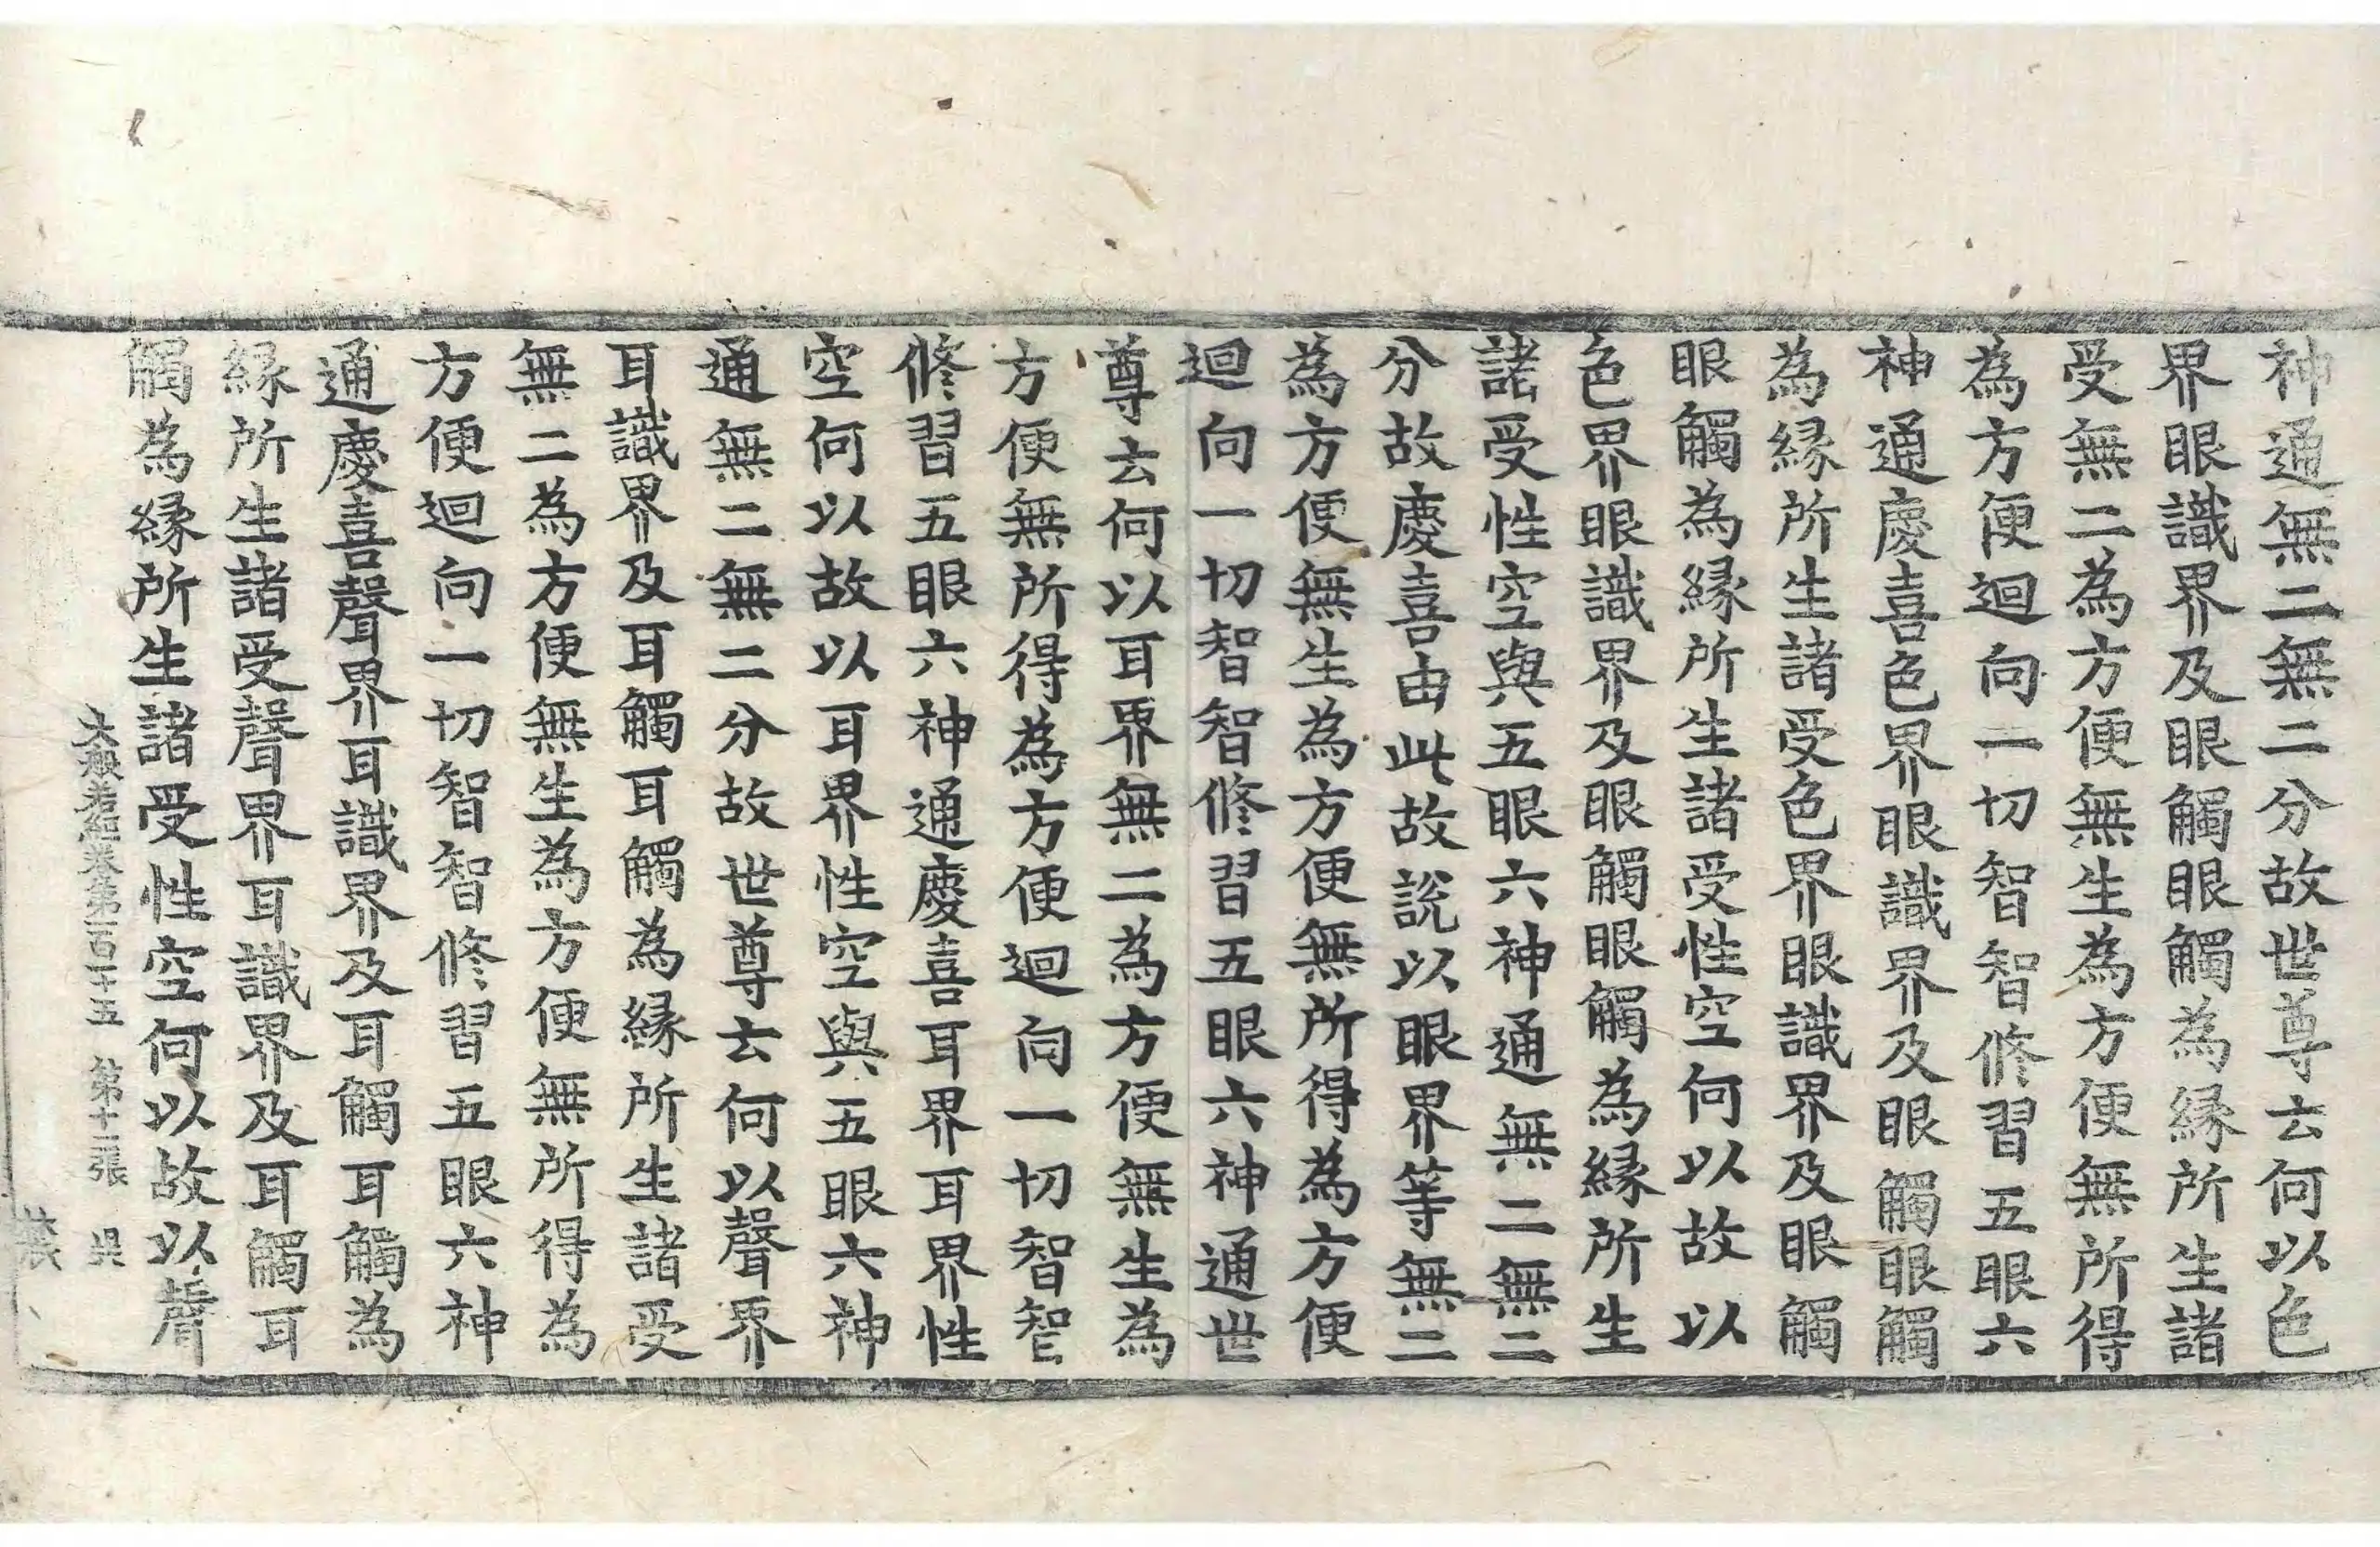 神通無二無二分故世尊云何以色
界眼識界及眼觸眼觸為緣所生諸
受無二為方便無生為方便無所得
為方便迴向一切智智修習五眼六
神通慶喜色界眼識界及眼觸眼觸
為緣所生諸受色界眼識界及眼觸
眼觸為緣所生諸受性空何以故以
色界眼識界及眼觸眼觸為緣所生
諸受性空與五眼六神通無二無二
分故慶喜由此故說以眼界等無二
為方便無生為方便無所得為方便
迴向一切智智修習五眼六神通世
尊云何以耳界無二為方便無生為
方便無所得為方便迴向一切智智
修習五眼六神通慶喜耳界耳界性
空何以故以耳界性空與五眼六神
通無二無二分故世尊云何以聲界
耳識界及耳觸耳觸為緣所生諸受
無二為方便無生為方便無所得為
方便迴向一切智智修習五眼六神
通慶喜聲界耳識界及耳觸耳觸為
緣所生諸受聲界耳識界及耳觸耳
觸為緣所生諸受性空何以故以聲
大般若經卷第一百二十五 第十二張